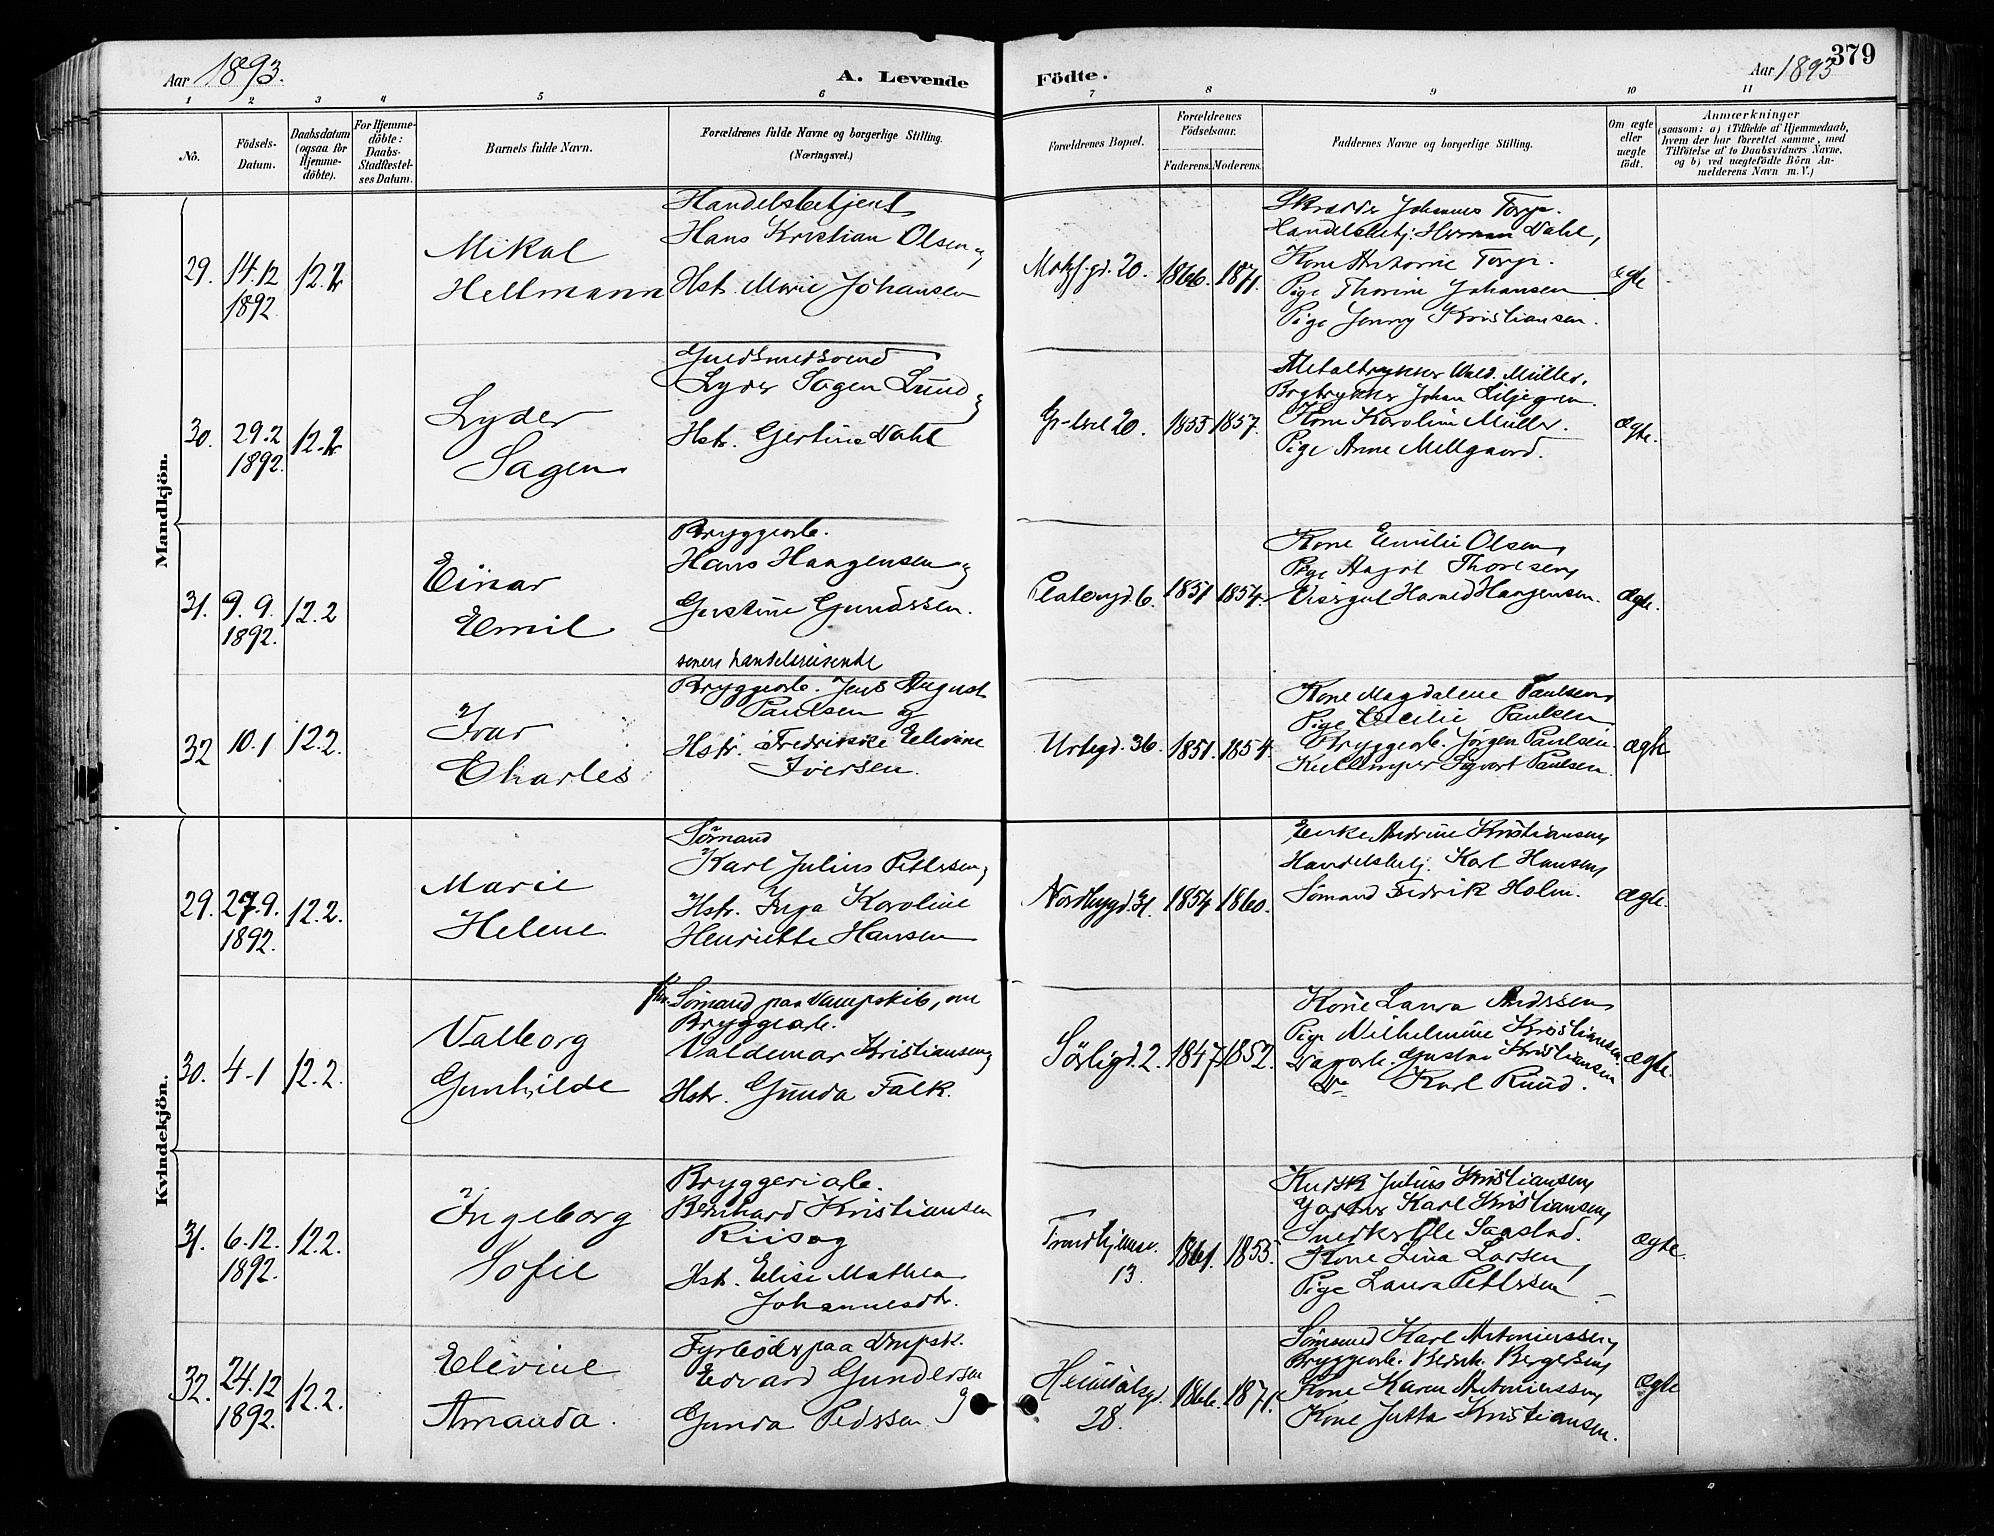 379
Aar 1893.
A. Levende
Födte.
Aar 1893
1 2 3 4 5 6 7 8 9 10 11
No.
Födsels-
Datum.
Daabsdatum
(ogsaa for
Hjemme-
döbte).
For Hjemme-
döbte:
Daabs-
Stadfæstel-
ses Datum.
Barnets fulde Navn.
Forældrenes fulde Navne og borgerlige Stilling.
(Næringsvei.)
Forældrenes Bopæl.
Forældrenes
Födselsaar.
Faderens. Moderens.
Faddernes Navne og borgerlige Stilling.
Om ægte
eller
uægte
födt.
Anmærkninger
(saasom: a) i Tilfælde af Hjemmedaab,
hvem der har forrettet samme, med
Tilföielse af to Daabsvidners Navne,
og b) ved uægtefödte Börn An-
melderens Navn m. V.)
Mandkjön.
29.
14.12
1892
12.2
Mikal
Hellmann
Handelsbetjent
Hans Kristian Olsen og
Hstr. Marie Johansen
20.
1866.
1871.
Skrædder Johannes Torp.
Handelsbetj. Herman Dahl,
Kone Antonie Torp.
Pige Thorine Johansen
Pige Jenny Kristiansen.
ægte
30.
29.2
1892.
12.2
Lyder
Sagen
Guldsmedsvend
Lyder Sagen Lund og
Hstr. Gertine Dahl
20.
1855
1857.
Metaltrykker Vald. Müller.
Bogtrykker Johan Liljegren.
Kone Karoline Müller.
Pige Anne Mellgaard.
ægte.
31.
9.9.
1892.
12.2
Einar
Emil
Bryggearb.
Hans Haagensen og
Gustine Gundersen.
Platougd. 6.
1851
1854.
Kone Emilie Olsen,
Pige Aagot Thoresen,
Visergut Harald Haagensen.
ægte.
32
10.1
12.2.
Ivar
Charles
senere handelsreisende
Bryggearb. Jens August
Paulsen og
Hstr. Fredrikke Elevine
Iversen.
Urtegd. 36.
1851.
1854.
Kone Magdalene Paulsen,
Pige Cecilie Paulsen
Bryggearb. Jörgen Paulsen
Sigvart Paulsen.
ægte
Kvindekjön.
29.
27.9.
1892.
12.2.
Marie
Helene
Sömand
Karl Julius Pettersen og
Hstr. Inga Karoline
Henriette Hansen
Nordbygd. 31.
1854
1860.
Enke Andrine Kristiansen,
Handelsbetj. Karl Hansen,
Sömand Fedrik Holm.
ægte.
30.
4-1
12.2.
Valborg
Gunhilde
Sömand paa Dampskib, nu
Bryggearb.
Valdemar Kristiansen og
Hstr. Gunda Falk.
Sörligd. 2.
1847
1852.
Kone Laura Andersen
Pige Vilhelmine Kristiansen
Dagarb. Gustav Kristiansen
Do Karl Ruud.
ægte.
31.
6.12.
1892.
12.2.
Ingeborg
Sofie
Bryggeriarb.
Bernhard Kristiansen
Riis og
Hst. Elise Mathea
Johannesdtr.
Trondhjemsv.
13.
1861.
1855.
Kudsk Julius Kristiansen,
Gartner Karl Kristiansen,
Snedker Ole Saastad.
Kone Lina Larsen,
Pige Laura Pettersen
ægte.
32.
24.12
1892.
12.2.
Elevine
Amanda.
Fyrböder paa Dmpsk.
Edvard Gundersen
Gunda Pedersen
Heimdalsgd.
28.
1866.
1871.
Sömand Karl Antoniussen,
Bryggearb. Bernh. Bergersen,
Kone Karen Antoniussen,
Kone Jutta Kristiansen.
ægte